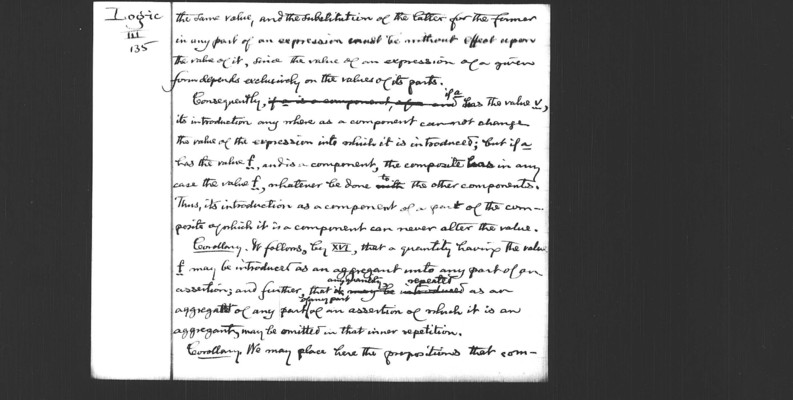 Logic
III
135
the same value, and the substitution of the latter for the former
in any part of an expression must be without effect upon
the value of it, since the value of an expression of a given
form depends exclusively on the values of its parts.
Consequently, if a is a component, if a has the value v,
its introduction any where as a component cannot change
the value of the expression into which it is introduced; but if a
has the value f, and is a component, the composite has in any
case the value f, whatever be done with to the other components.
Thus, its introduction as a component of a part of the com-
posite of which it is a component can never alter the value.
Corollary. It follows, by XVI, that a quantity having the value
f may be introduced as an aggregant unto any part of an
assertion; and further, that it may be introduced any quantity repeated as an
aggregant of any part of any part of an assertion of which it is an
aggregant, may be omitted in that inner repetition.
Corollary. We may place here the propositions that com-